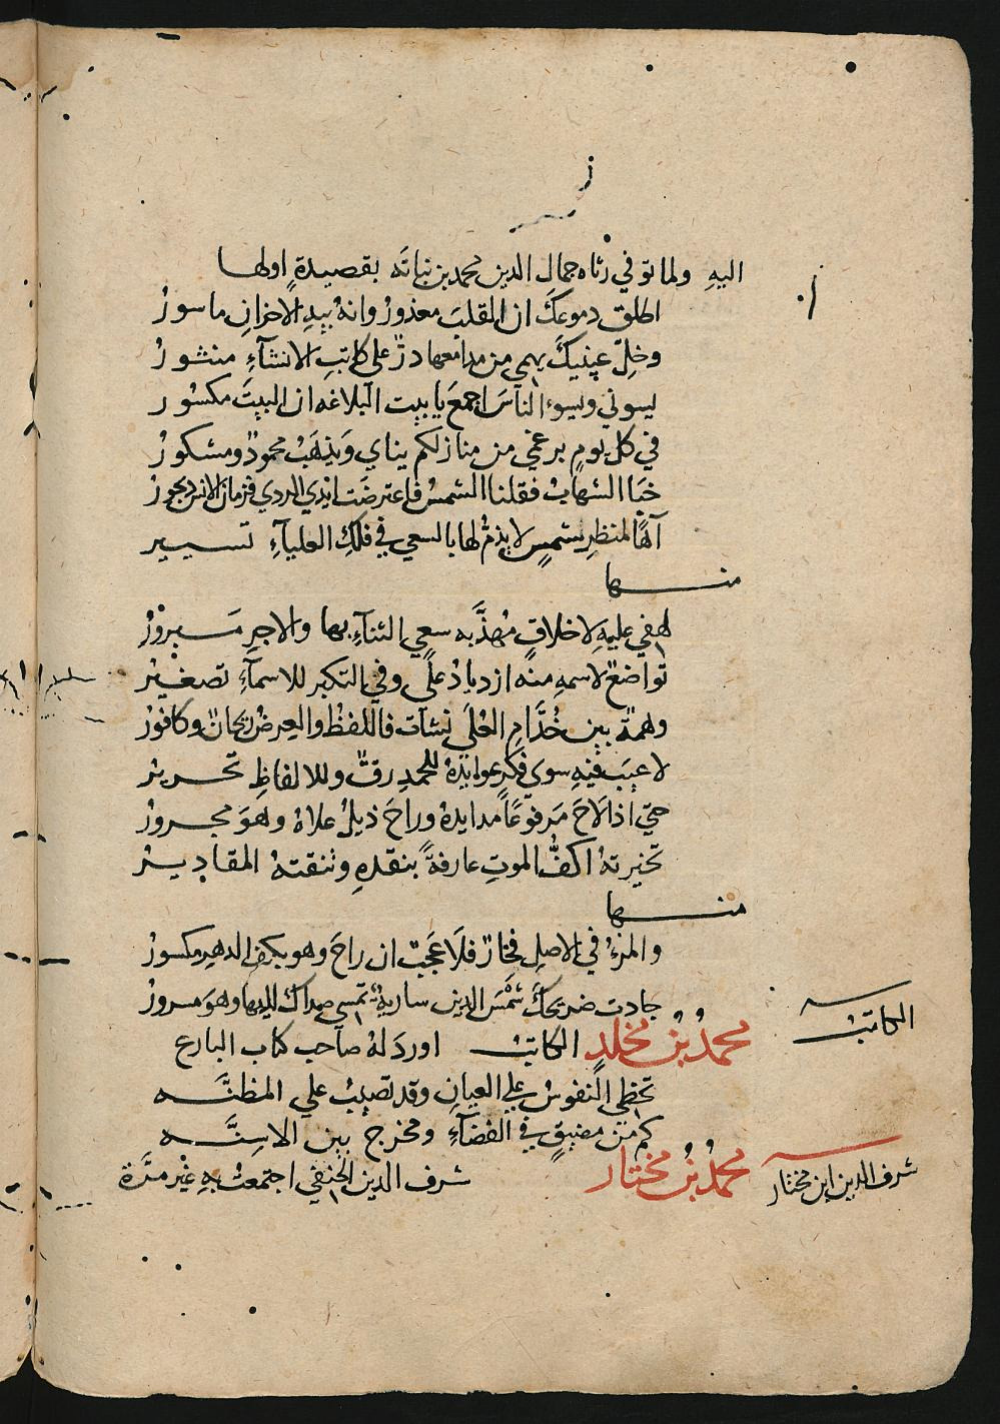 اليهِ ولما توفي رثاه جمال الدين محمد بن نباته بقصيدةٍ اولها
اطلق دموعكَ ان القلبَ معذورُ وانهُ بيدِ الاحزانِ ماسورُ
وخلِّ عينيكَ يهمي من مدامعها درٌّ على كاتبِ الانشآءِ منثورُ
يسوني ويسوء الناسَ اجمعَ يا بيت البلاغه ان البيتَ مكسور
في كل يومٍ برغمي من منازلكم يناي ويذهَبُ محمودٌ ومشكورُ
خبا الشهابُ فقلنا الشمسُ فاعترضَت ايدي الردي فزمان الانس ديجورُ
آهًا لمنظرِ شمسٍ لا يذمُّ لها بالسعي في فلكِ العلياءِ تسيير
منها
لهفي عليهِ لاخلاقٍ مهذَّبه سعي الثناءِ بها والاجرِ مبرورُ
تواضعٌ لاسمهِ منه ازديادُ علًى وفي التكبر للاسمآءِ تصغيرُ
وهمةٌ بين خُدَّامِ العُلَي نشات فاللفظُ والعرضُ ريحانٌ وكافورُ
لا عيبَ فيهِ سوي فكرٍ عوايدهُ للحمدِ رقٌّ وللالفاظِ تحريرُ
حتي اذا لاحَ مَرفوعًا مدايدهُ وراحَ ذيلُ علاهُ وهوَ مجرورُ
تخيرتهُ اكفُّ الموتِ عارفةً بنقدهِ وتنقتهُ المقاديرُ
منها
والمرءُ في الاصلِ فخارٌ فلا عَجَبٌ ان راحَ وهو بكف الدهرِ مكسورُ
جادت ضريحكَ شمْسَ الدين ساريةٌ تمسي صداك لديها وهوَ مسرورُ
الكاتبُ
محمدُ بنُ مخلدٍ الكاتبُ اوردَ لهُ صاحب كتاب البارع
تخطي النفوسُ علي العيانِ وقد تصيبُ علي المظنَّه
كم من مضيقٍ في الفضآءِ ومخرج بين الاسِنَّه
شرف الدين ابن مختار
محمدُ بنُ مختار شرف الدين الحنفي اجتمعتُ بهِ غيْرَ مرَّة